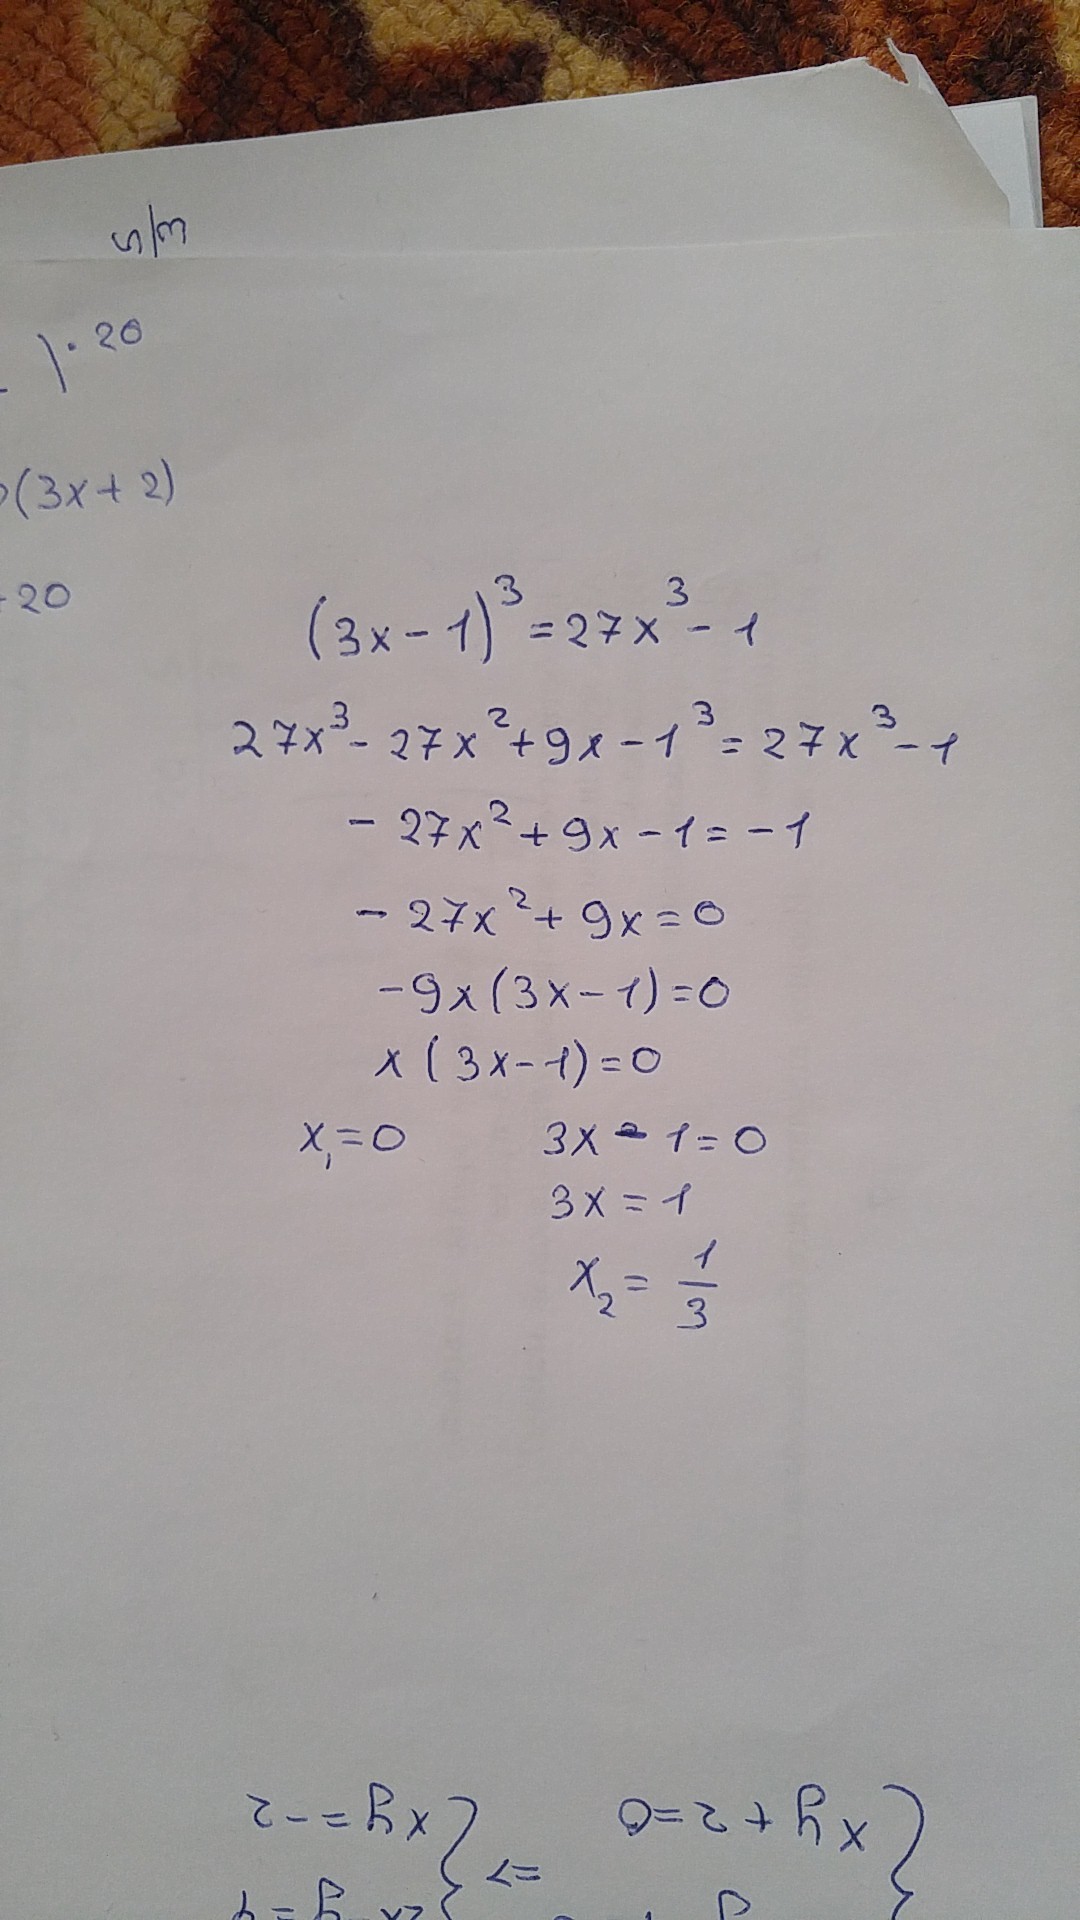 5/3
)·20
(3x+2)
20
(3x-1)³=27x³-1
27x³-27x²+9x-1³=27x³-1
-27x²+9x-1=-1
-27x²+9x=0
-9x(3x-1)=0
x(3x-1)=0
x₁=0 3x-1=0
3x=1
x₂=1/3
{xy+2=0 => {xy=-2